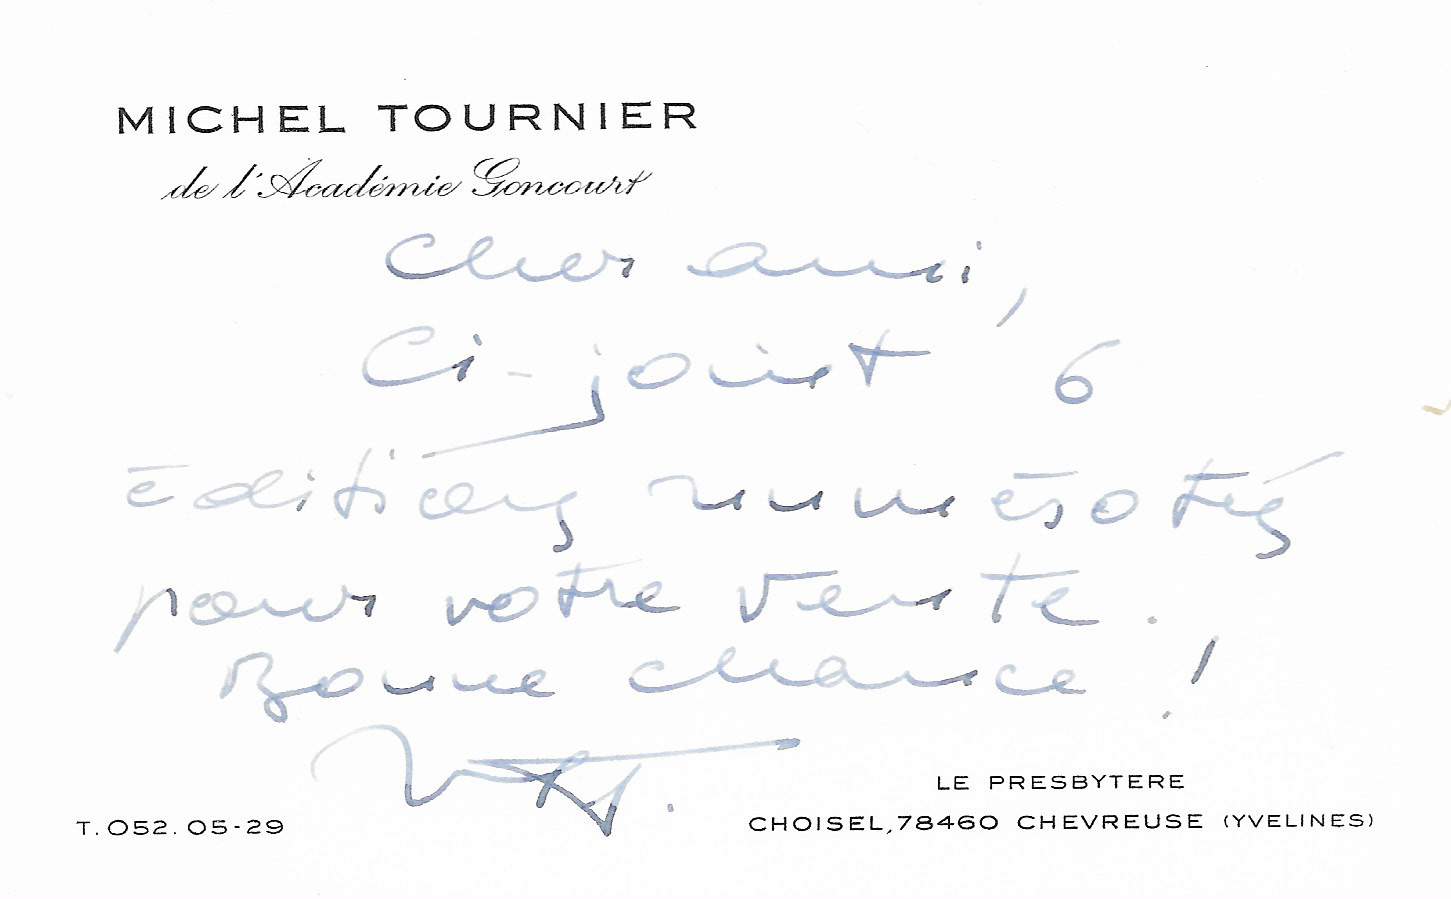 MICHEL TOURNIER
de l'Académie Goncourt
Cher ami,
Ci-joint 6
éditions numérotés
pour votre vente.
Bonne chance !
T. 052. 05-29
LE PRESBYTERE
CHOISEL, 78460 CHEVREUSE (YVELINES)